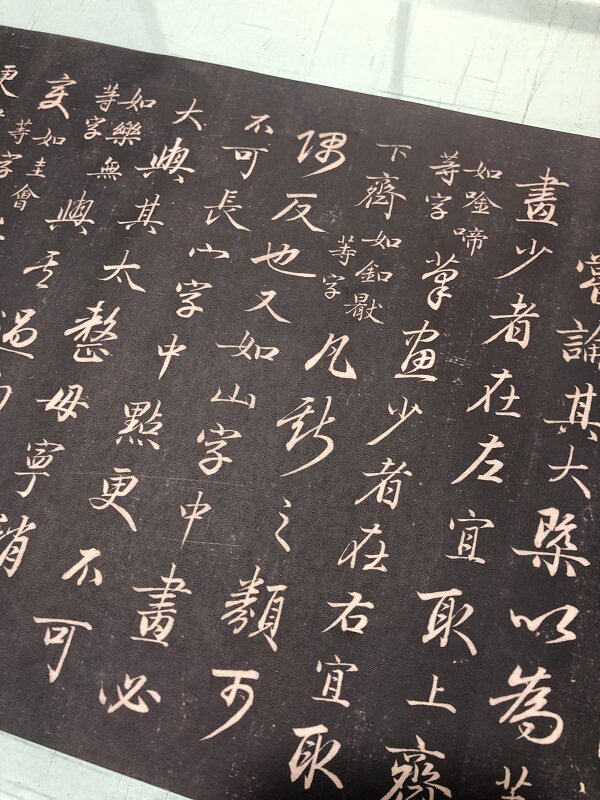 嘗論其大槩以為
畫少者在左宜取上齊
如唫啼等字筆畫少者在右宜取
下齊如釦㝡等字凡斯之類可
隅反也又如山字中畫必
不可長小字中點更不可
大與其太整毋寧
如樂無等字與
如圭會等字
等字